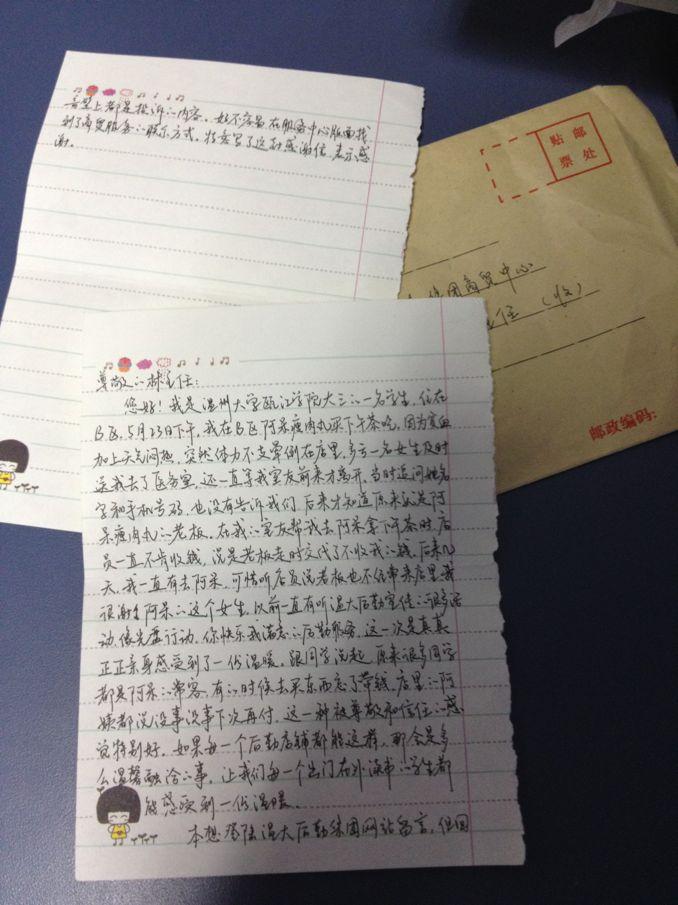 尊敬的林主任：
您好！我是温州大学瓯江学院大三的一名学生，住在
B区，5月23日下午，我在B区阿呆瘦肉丸买下午茶吃，因为贫血
加上天气闷热，突然体力不支晕倒在店里，多亏一名女生及时
送我去了医务室，还一直等我室友前来才离开，当时追问她名
字和手机号码，也没有告诉我们，后来才知道原来她是阿
呆瘦肉丸的老板。在我的室友帮我去阿呆拿下午茶时，店
员一直不肯收钱，说是老板走时交代了不收我的钱。后来几
天，我一直有去阿呆，可惜听店员说老板也不经常来店里。我
很谢谢阿呆的这个女生，以前一直有听温大后勤宣传的很多活
动，像光盘行动，你快乐我满意的后勤服务，这一次是真真
正正亲身感受到了一份温暖。跟同学说起，原来很多同学
都是阿呆的常客，有的时候去买东西忘了带钱，店里的阿
姨都说没事没事下次再付，这一种被尊敬和信任的感
觉特别好。如果每一个后勤店铺都能这样，那会是多
么温馨融洽的事，让我们每一个出门在外读书的学生都
能感受到一份温暖。
本想登陆温大后勤集团网站留言，但因
音壁上都是投诉的内容。好不容易在服务中心版面找
到了商贸服务的联系方式，特意写了这封感谢信，表示感
谢。
贴 邮
票 处
集团商贸中心
主任（收）
邮政编码：